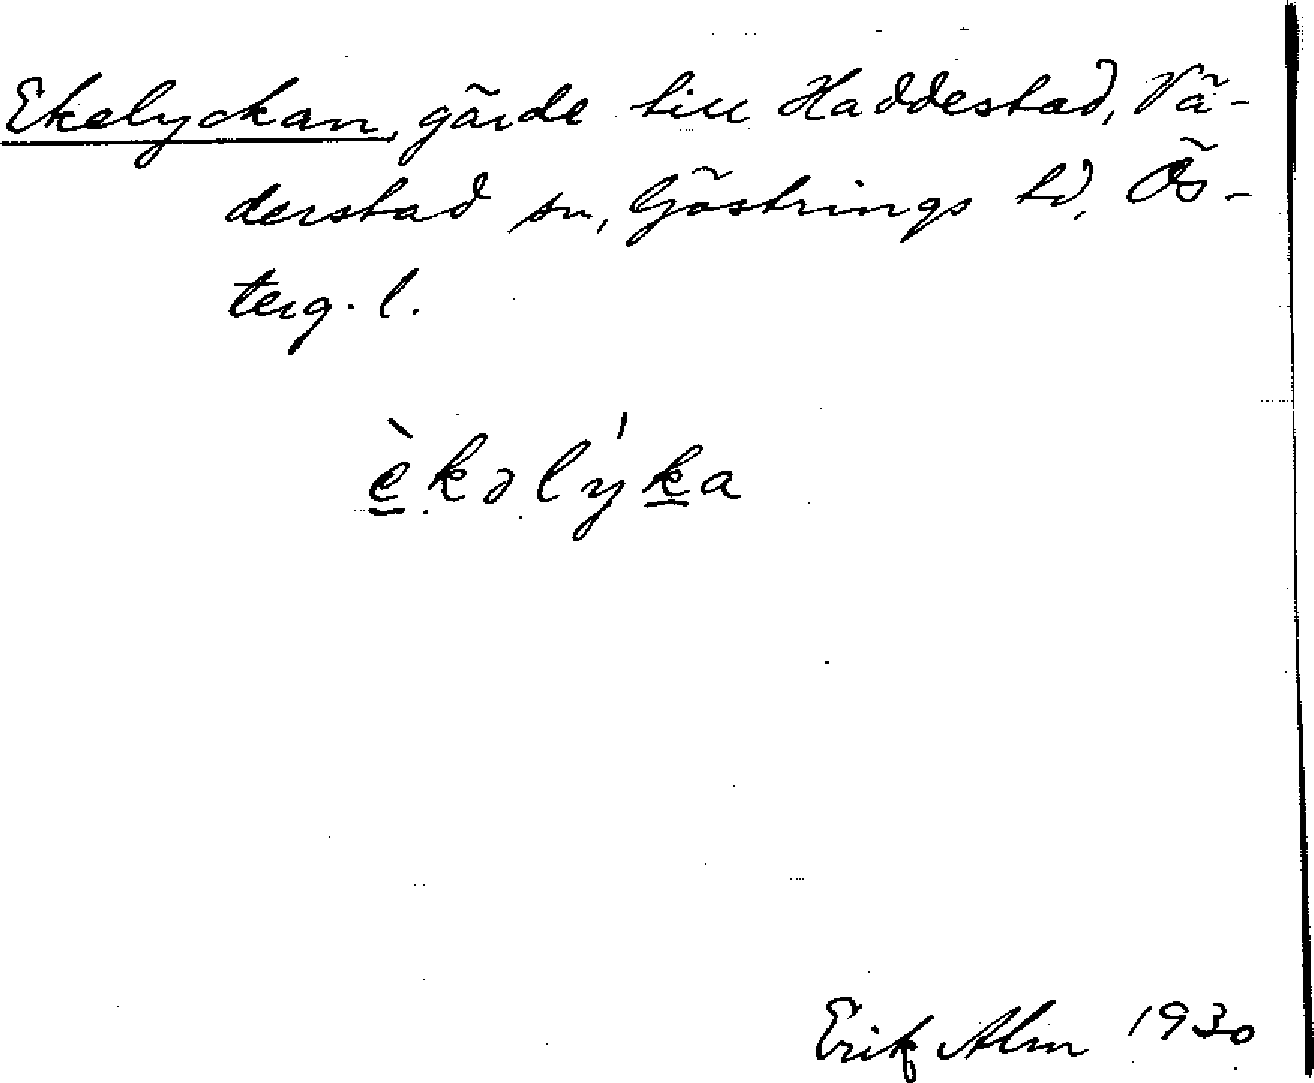 Ekelyckan, gärde till Haddestad, Vä-
derstad sn, Göstrings hd, Ös-
terg. l.
è̲kəlýk̲a
Erik Alm 1930